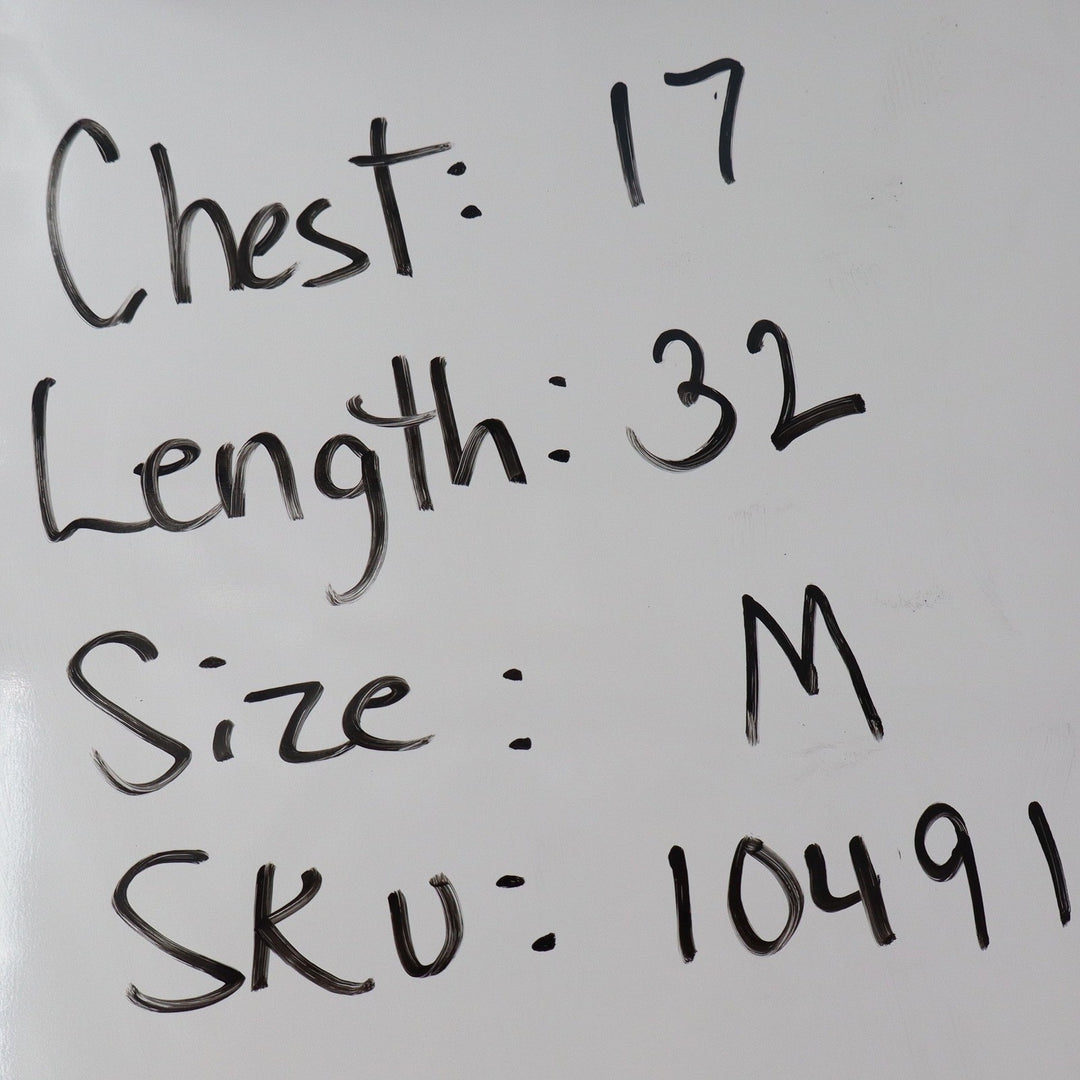 Chest: 17
Length: 32
Size: M
SKU: 10491